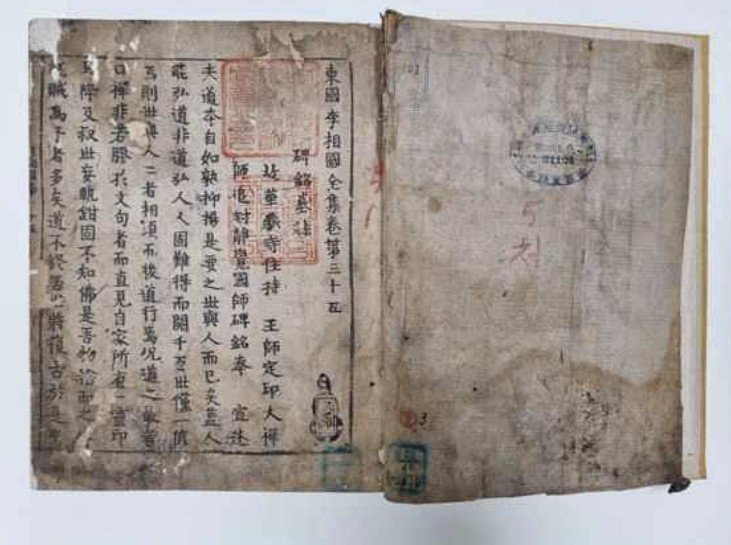 東國李相國全集卷第三十五
碑銘墓誌
故華嚴寺住持 王師定印大禪
師追封靜覺國師碑銘奉 宣述
夫道本自如孰抑揚是要之世與人而已矣盖人
能弘道非道弘人人固難得而間千百世僅一値
焉則世與人二者相須而後道行焉况道之最者
曰禪非若膠於文句者而直見自家所有一靈印
降及叔世妄執鉗固不知佛是吾物
賊爲子者多矣道不終否必將復古於是
101
5
3